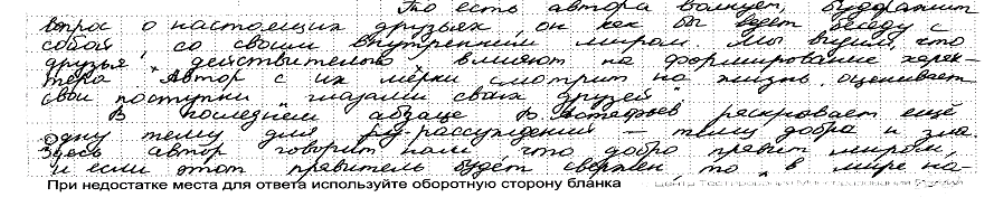 То есть автора волнует, будоражит
вопрос о настоещих друзьях, он как бы ведет беседу с
собой, со своим внутренним миром. Мы видим, что
друзья „ действительно „ влияют на формирование харак-
тера. Автор с их мерки смотрит на жизнь, оценивает
свои поступки „ глазами своих друзей".
В последнем абзаце В. Астафьев раскрывает ещё
одну тему для рассуждений – тему добра и зла.
Здесь автор говорит нам что добро правит миром,
и если этот правитель будет свержен, то „ в мире на-
При недостатке места для ответа используйте оборотную сторону бланка